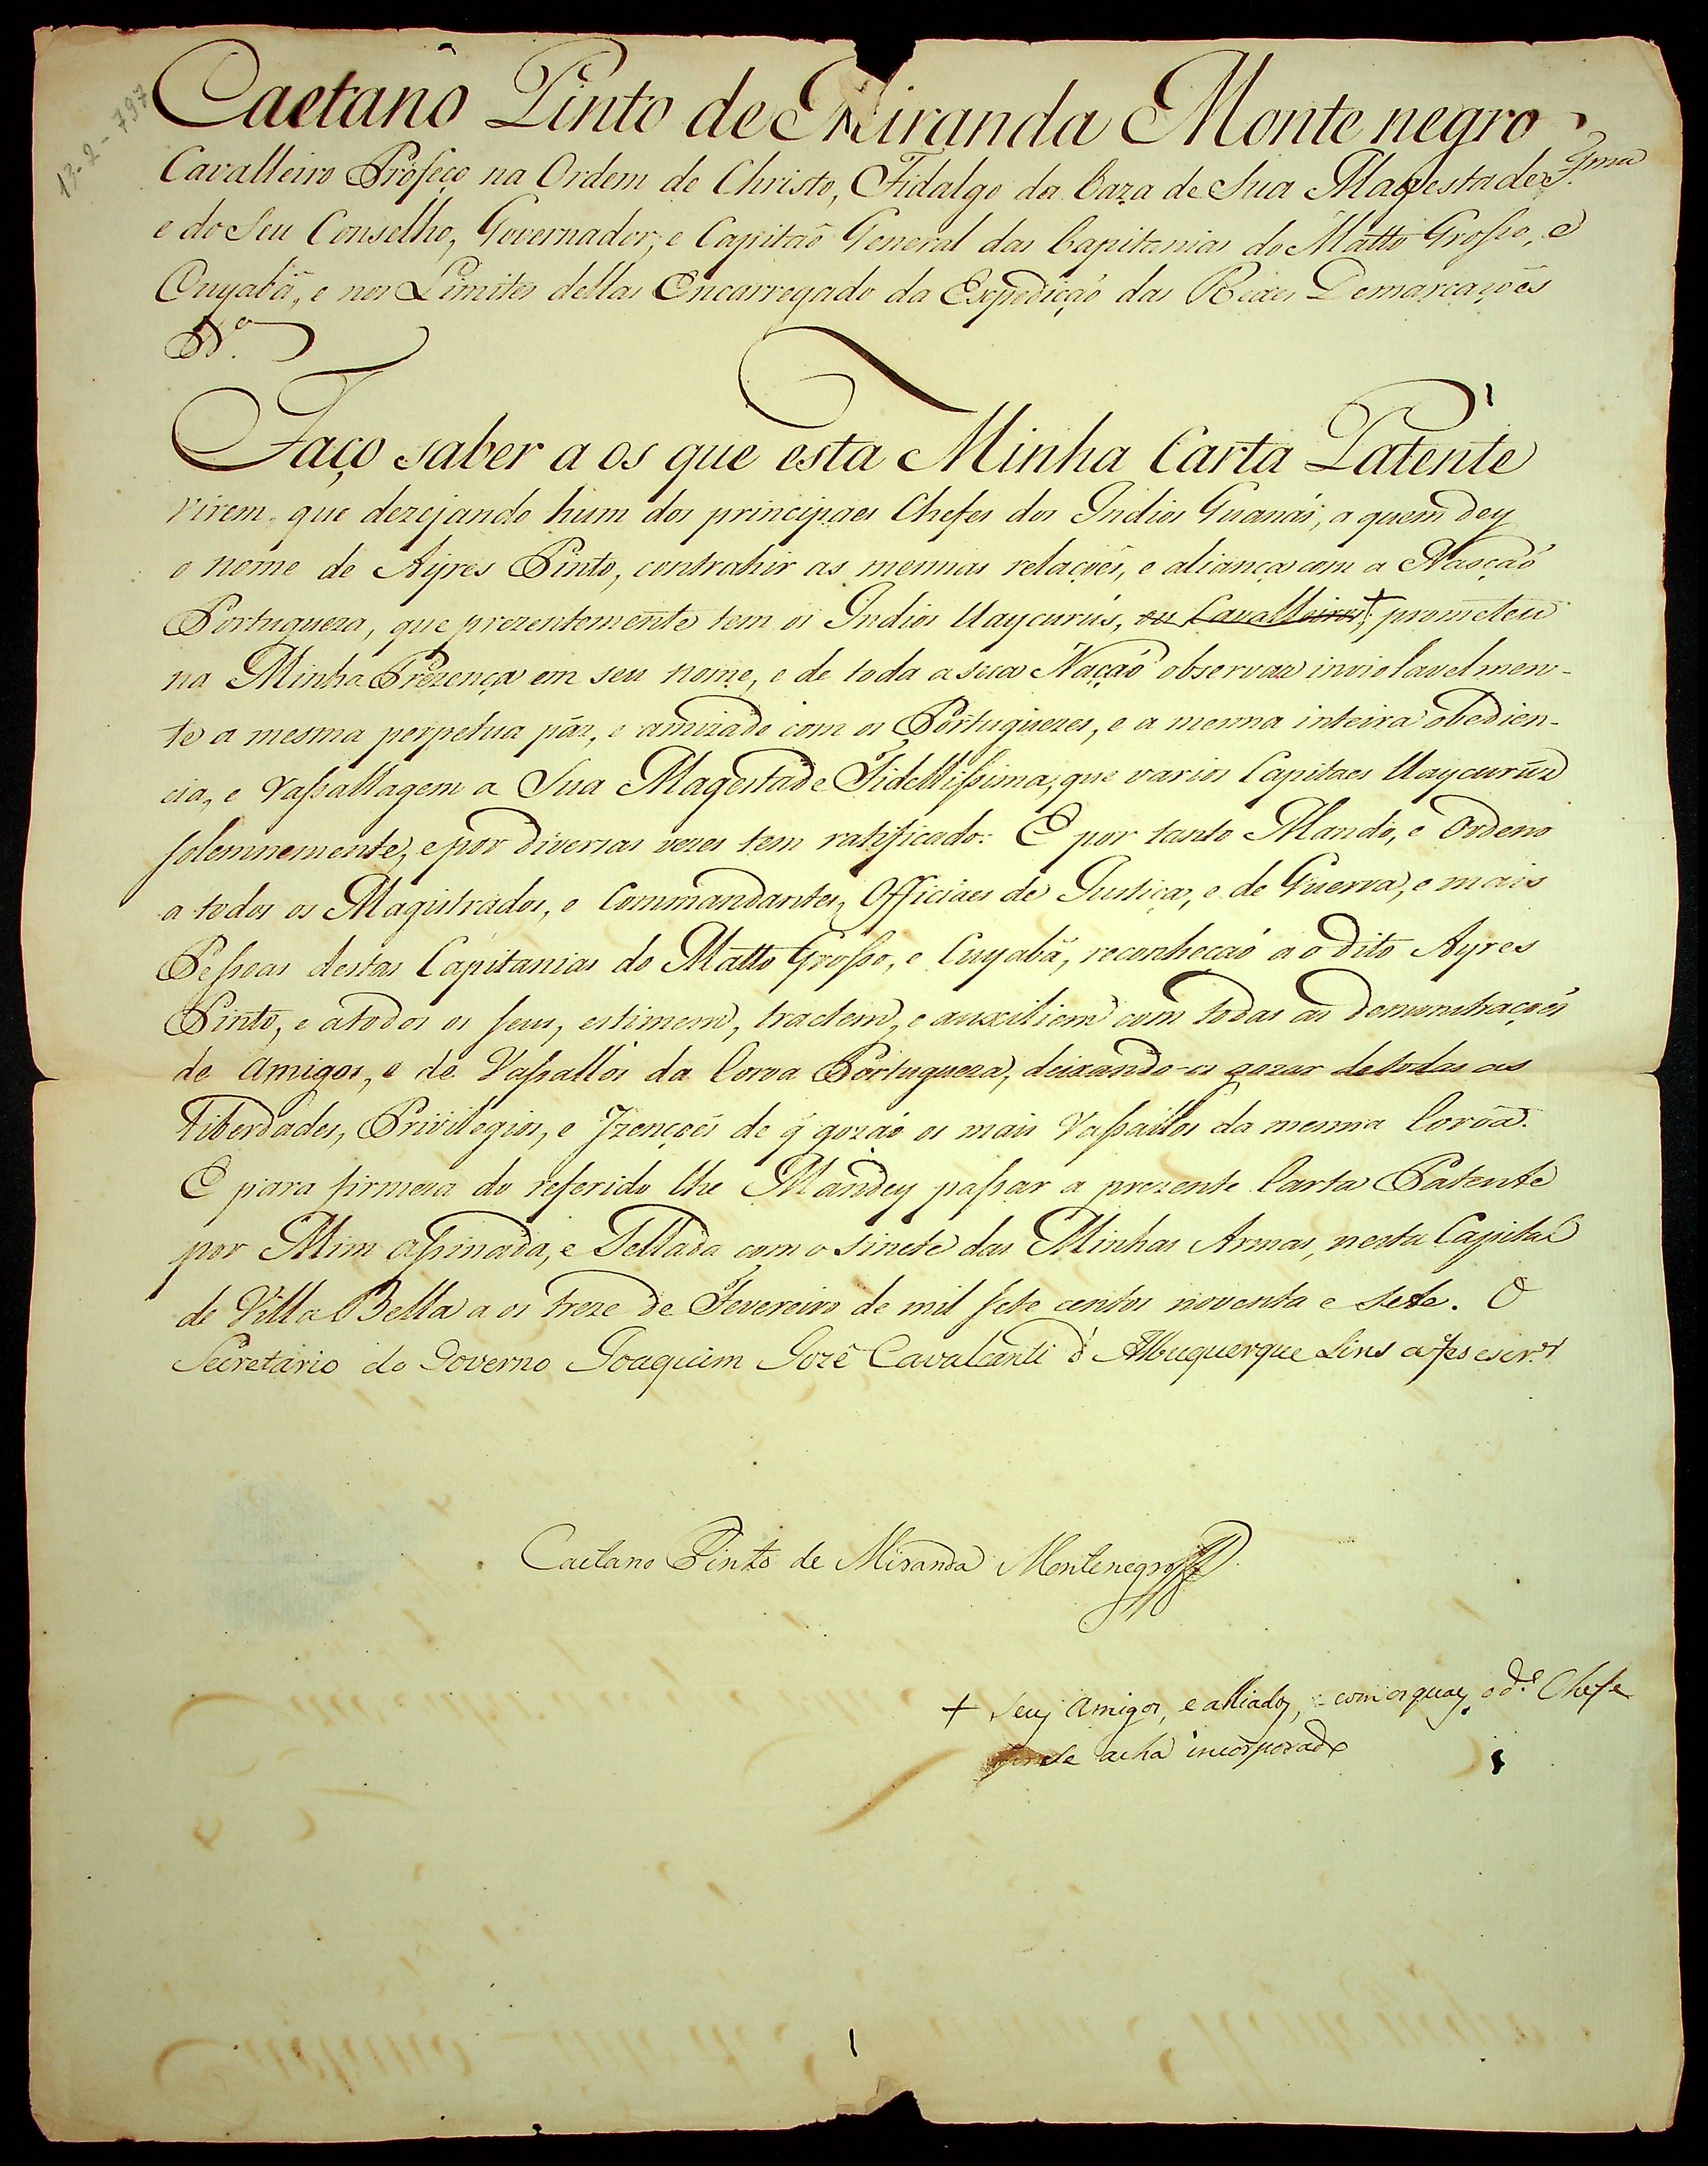 13-2-797
Caetano Pinto de Miranda Monte negro
Cavalleiro Profeço na Ordem de Christo, Fidalgo da Caza de Sua Magestade F.ma
e do Seu Conselho, Governador, e Capitaõ General das Capitanias do Matto Grosso, e
Cuyabá, e nos Limites dellas Encarregado da Expedição das Reaes Demarcações
Faço saber a os que esta Minha Carta Patente
virem, que dezejando hum dos principaes Chefes dos Indios Guanás, a quem dey
o nome de Ayres Pinto, contrahir as mesmas relações, e aliança com a Nasção
Portugueza, que prezentemente tem os Indios Uaycurús, ou Cavalleiros, + prometeu
na Minha Prezença em seu nome, e de toda a sua Nação observar inviolavelmen-
te a mesma perpetua páz, e amizade com os Portuguezes, e a mesma inteira obedien-
cia, e Vassallagem a Sua Magestade Fidellissima, que varios Capitaes Uaycurús
solemnemente, e por diversas vezes tem ratificado: E por tanto Mando, e Ordeno
a todos os Magistrados, e Commandantes, Officiaes de Justiça, e de Guerra, e mais
Pessoas destas Capitanias do Matto Grosso, e Cuyabá, reconheção a o dito Ayres
Pinto, e a todos os seus, estimem, tractem, e auxiliem com todas as demonstrações
de Amigos, e de Vassallos da Coroa Portugueza, deixando-os gozar de todas as
Liberdades, Privilegios, e Izenções de q̃ gozão os mais Vassallos da mesma Coroa.
E para firmeza do referido lhe Mandey passar a prezente Carta Patente
por Mim assinada, e Sellada com o sinete das Minhas Armas, nesta Capital
de Villa Bella a os treze de Fevereiro de mil sete centos noventa e sete. O
Secretario do Governo Joaquim Jozé Cavalcanti d'Albuquerque Lins a fes escr.er
Caetano Pinto de Miranda Montenegro
+ seus Amigos, e alliados, com os quaes o d.o Chefe
se acha incorporado